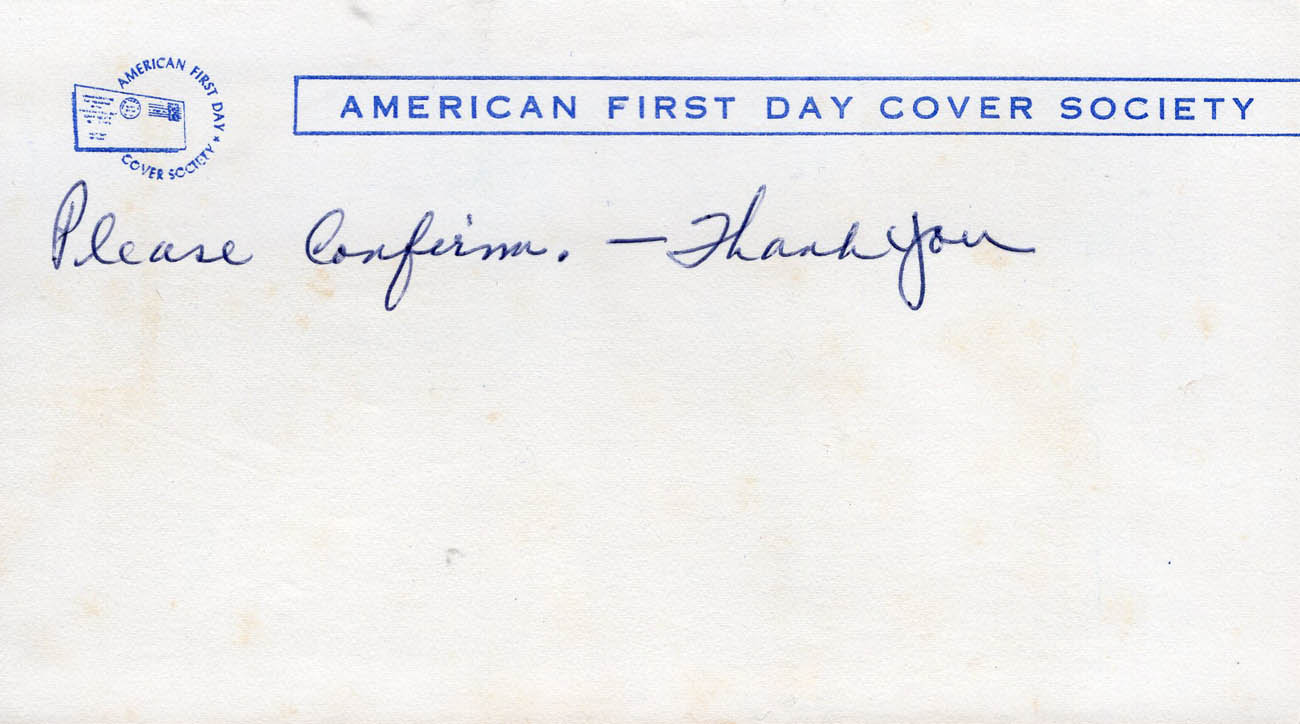 AMERICAN FIRST DAY
COVER SOCIETY
AMERICAN FIRST DAY COVER SOCIETY
Please Confirm. — Thank you